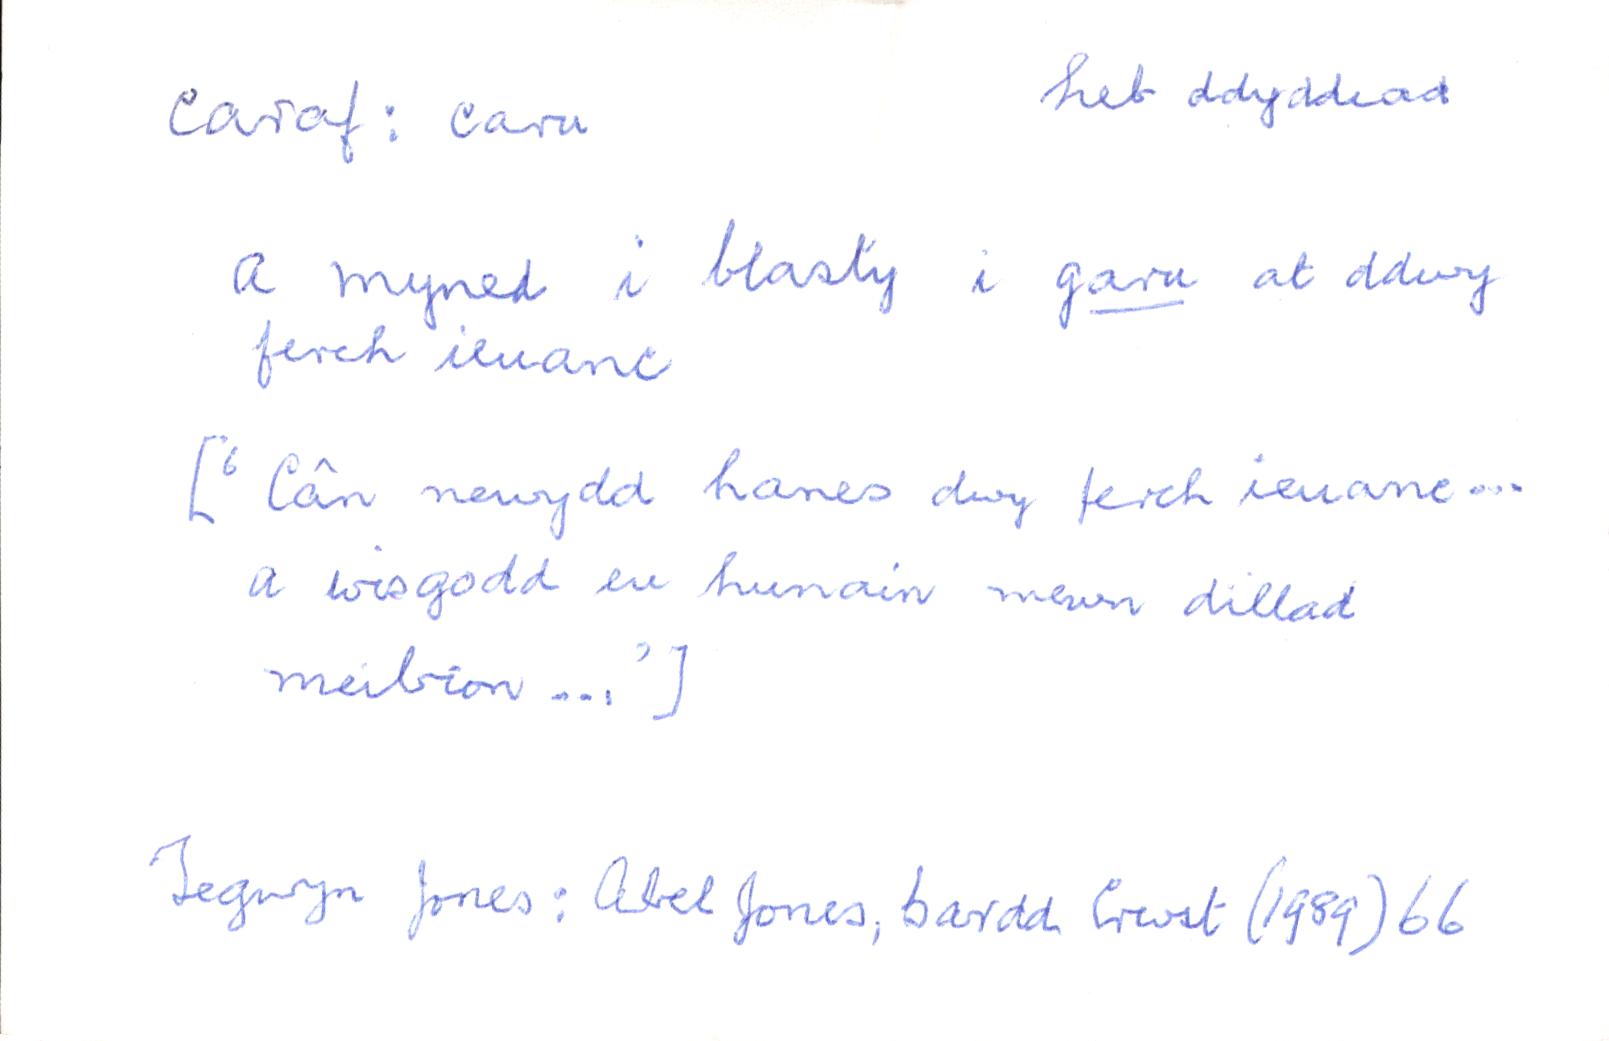 caraf: caru
heb ddyddiad
a myned i blasty i garu at ddwy
ferch ieuanc
[‘Cân newydd hanes dwy ferch ieuanc...
a wisgodd eu hunain mewn dillad
meibion ...’]
Tegwyn Jones: Abel Jones, bardd Crwst (1989) 66